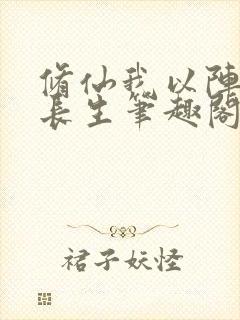 修仙我以陣
長生筆趣閣
裙子妖怪